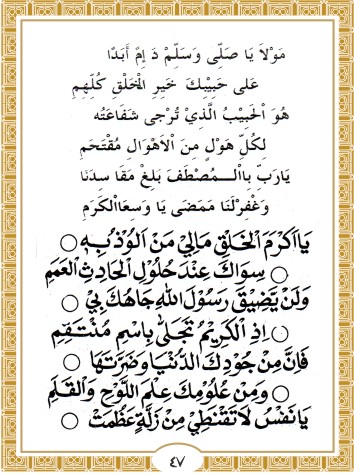 مَوْلاَ يَا صَلِّى وَسَلِّمْ دَ إِمً أَبَدًا
عَلى حَبِيْبِكَ خَيْرِ الْخَلْقِ كُلِّهِمِ
هُوَ الْحَبِيْبُ الَّذِيْ تُرْجَى شَفَاعَتُه
لِكُلِّ هَوْلٍ مِنَ الْاَهْوَالِ مُقْتَحَمِ
يَارَبِّ بِاالْمُصْطَفَ بَلِغْ مَقَا سِدَنَا
وَغْفِرْلَنَا مَمَضَى يَا وَسِعَاالْكَرَمِ
يَااَكْرَمَ الْخَلْقِ مَالِيْ مَنْ اَلُوْذُبِهِ ○
○ سِوَاكَ عِنْدَ حُلُوْلِ الْحَادِثِ الْعَمَمِ
وَلَنْ يَضِيْقَ رَسُوْلَ اللهِ جَاهُكَ بِيْ ○
○ اِذِ الْكَرِيْمُ تَجَلَّى بِاسْمِ مُنْتَقِمِ
فَاِنَّ مِنْ جُوْدِكَ الدُّنْيَا وَضَرَّتَهَا ○
○ وَمِنْ عُلُوْمِكَ عِلْمَ اللَّوْحِ وَالْقَلَمِ
يَانَفْسُ لَا تَقْنَطِيْ مِنْ زَلَّةٍ عَظُمَتْ ○
٤٧